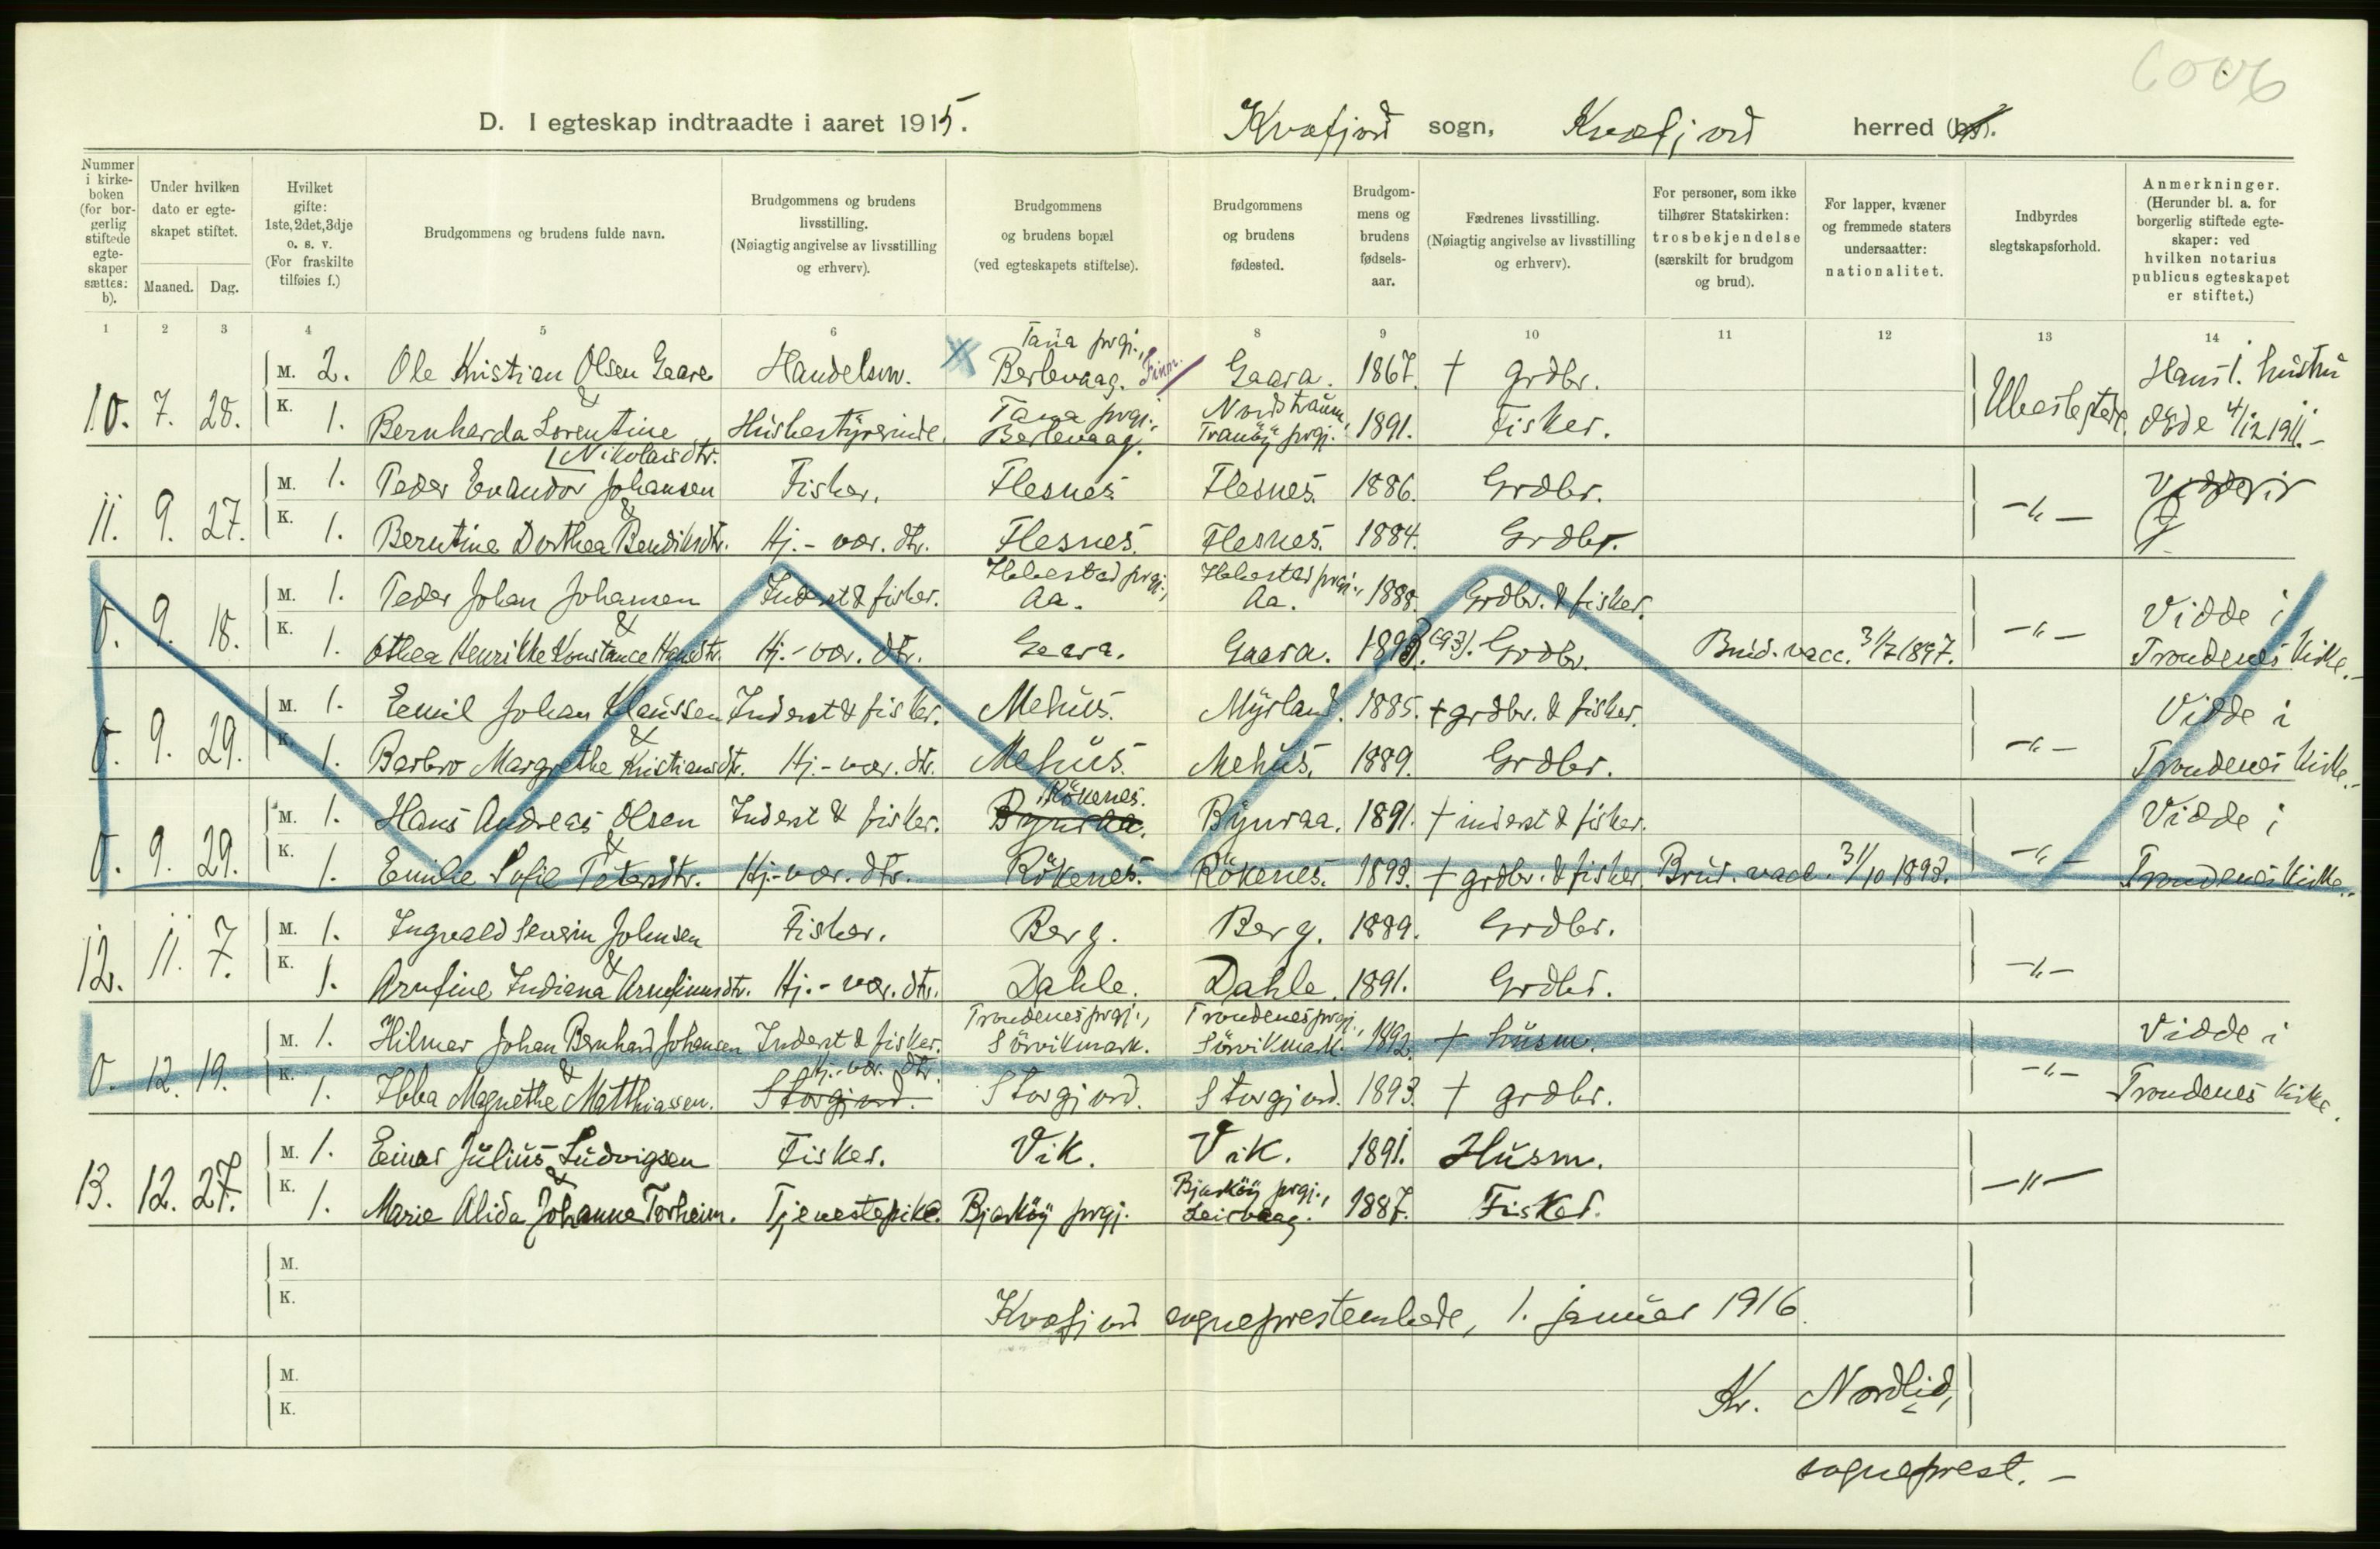 6006
D. I egteskap indtraadte i aaret 1915. Kvæfjord sogn, Kvæfjord herred (by).
Nummer i kirkeboken (for borgerlig stiftede egteskaper sættes: b).
Under hvilken dato er egteskapet stiftet.
Maaned. Dag.
Hvilket gifte: 1ste, 2det, 3dje o. s. v. (For fraskilte tilføies f.)
Brudgommens og brudens fulde navn.
Brudgommens og brudens livsstilling. (Nøiagtig angivelse av livsstilling og erhverv).
Brudgommens og brudens bopæl (ved egteskapets stiftelse).
Brudgommens og brudens fødested.
Brudgommens og brudens fødselsaar.
Fædrenes livsstilling. (Nøiagtig angivelse av livsstilling og erhverv).
For personer, som ikke tilhører Statskirken: trosbekjendelse (særskilt for brudgom og brud).
For lapper, kvæner og fremmede staters undersaatter: nationalitet.
Indbyrdes slegtskapsforhold.
Anmerkninger. (Herunder bl. a. for borgerlig stiftede egteskaper: ved hvilken notarius publicus egteskapet er stiftet.)
1 2 3 4 5 6 8 9 10 11 12 13 14
10. 7. 28.
M. 2. Ole Kristian Olsen Gaare Handelsm. Tana prgj., Berlevaag. Finm. Gaara. 1867. † grdbr. Ubeslegtede. Hans 1. hustru
&
K. 1. Bernharda Lorentine Nikolaisdtr. Husbestyrerinde. Tana prgj., Berlevaag. Nordstraum, Tranöy prgj. 1891. Fisker. døde 4/12 1911.-
11. 9. 27.
M. 1. Peder Evandor Johansen Fisker. Flesnes. Flesnes. 1886. Grdbr. -"-
&
K. 1. Berntine Dorthea Bendiksdtr. Hj.-vær. dtr. Flesnes. Flesnes. 1884. Grdbr.
0. 9. 18.
M. 1. Peder Johan Johansen Inderst & fisker. Ibbestad prgj., Aa. Ibbestad prgj., Aa. 1888. Grdbr. & fisker. -"- Vidde i
&
K. 1. Othea Henrikke Konstance Hansdtr. Hj.-vær. dtr. Gaara. Gaara. 1893. (93). Grdbr. Brud. vacc. 3/7 1897. Trondenes kirke.-
0. 9. 29.
M. 1. Eemil Johan Klaussen Inderst & fisker. Mehus. Myrland. 1885. † grdbr. & fisker. -"- Vidde i
&
K. 1. Barbro Margrethe Kristiansdtr. Hj.-vær. dtr. Mehus. Mehus. 1889. Grdbr. Trondenes kirke.-
0. 9. 29.
M. 1. Hans Andreas Olsen Inderst & fisker. Rökenes. Bynraa. Bynraa. 1891. † inderst & fisker. -"- Vidde i
&
K. 1. Emilie Sofie Petersdtr. Hj.-vær. dtr. Rökenes. Rökenes. 1893. † grdbr. & fisker. Brud. vacc. 31/10 1893. Trondenes kirke.-
12. 11. 7.
M. 1. Ingvald Severin Johnsen Fisker. Berg. Berg. 1889. Grdbr. -"-
&
K. 1. Arnfine Indiana Arnfinnsdtr. Hj.-vær. dtr. Dahle. Dahle. 1891. Grdbr.
0. 12. 19.
M. 1. Hilmar Johan Bernhard Johansen Inderst & fisker. Trondenes prgj., Sörvikmark. Trondenes prgj., Sörvikmark. 1892. † husm. -"- Vidde i
&
K. 1. Ibba Magnethe Matthiassen. Hj.-vær. dtr. Storgjord. Storgjord. Storgjord. 1893. † grdbr. Trondenes kirke.
13. 12. 27.
M. 1. Einar Julius Ludvigsen Fisker. Vik. Vik. 1891. Husm. -"-
&
K. 1. Marie Alida Johanna Torheim. Tjenestepike. Bjarköy prgj. Bjarköy prgj., Leirvaag. 1887. Fisker.
M.
K.
Kvæfjord sogneprestembede, 1. januar 1916.
M.
K.
Kr. Nordlid,
sogneprest.-